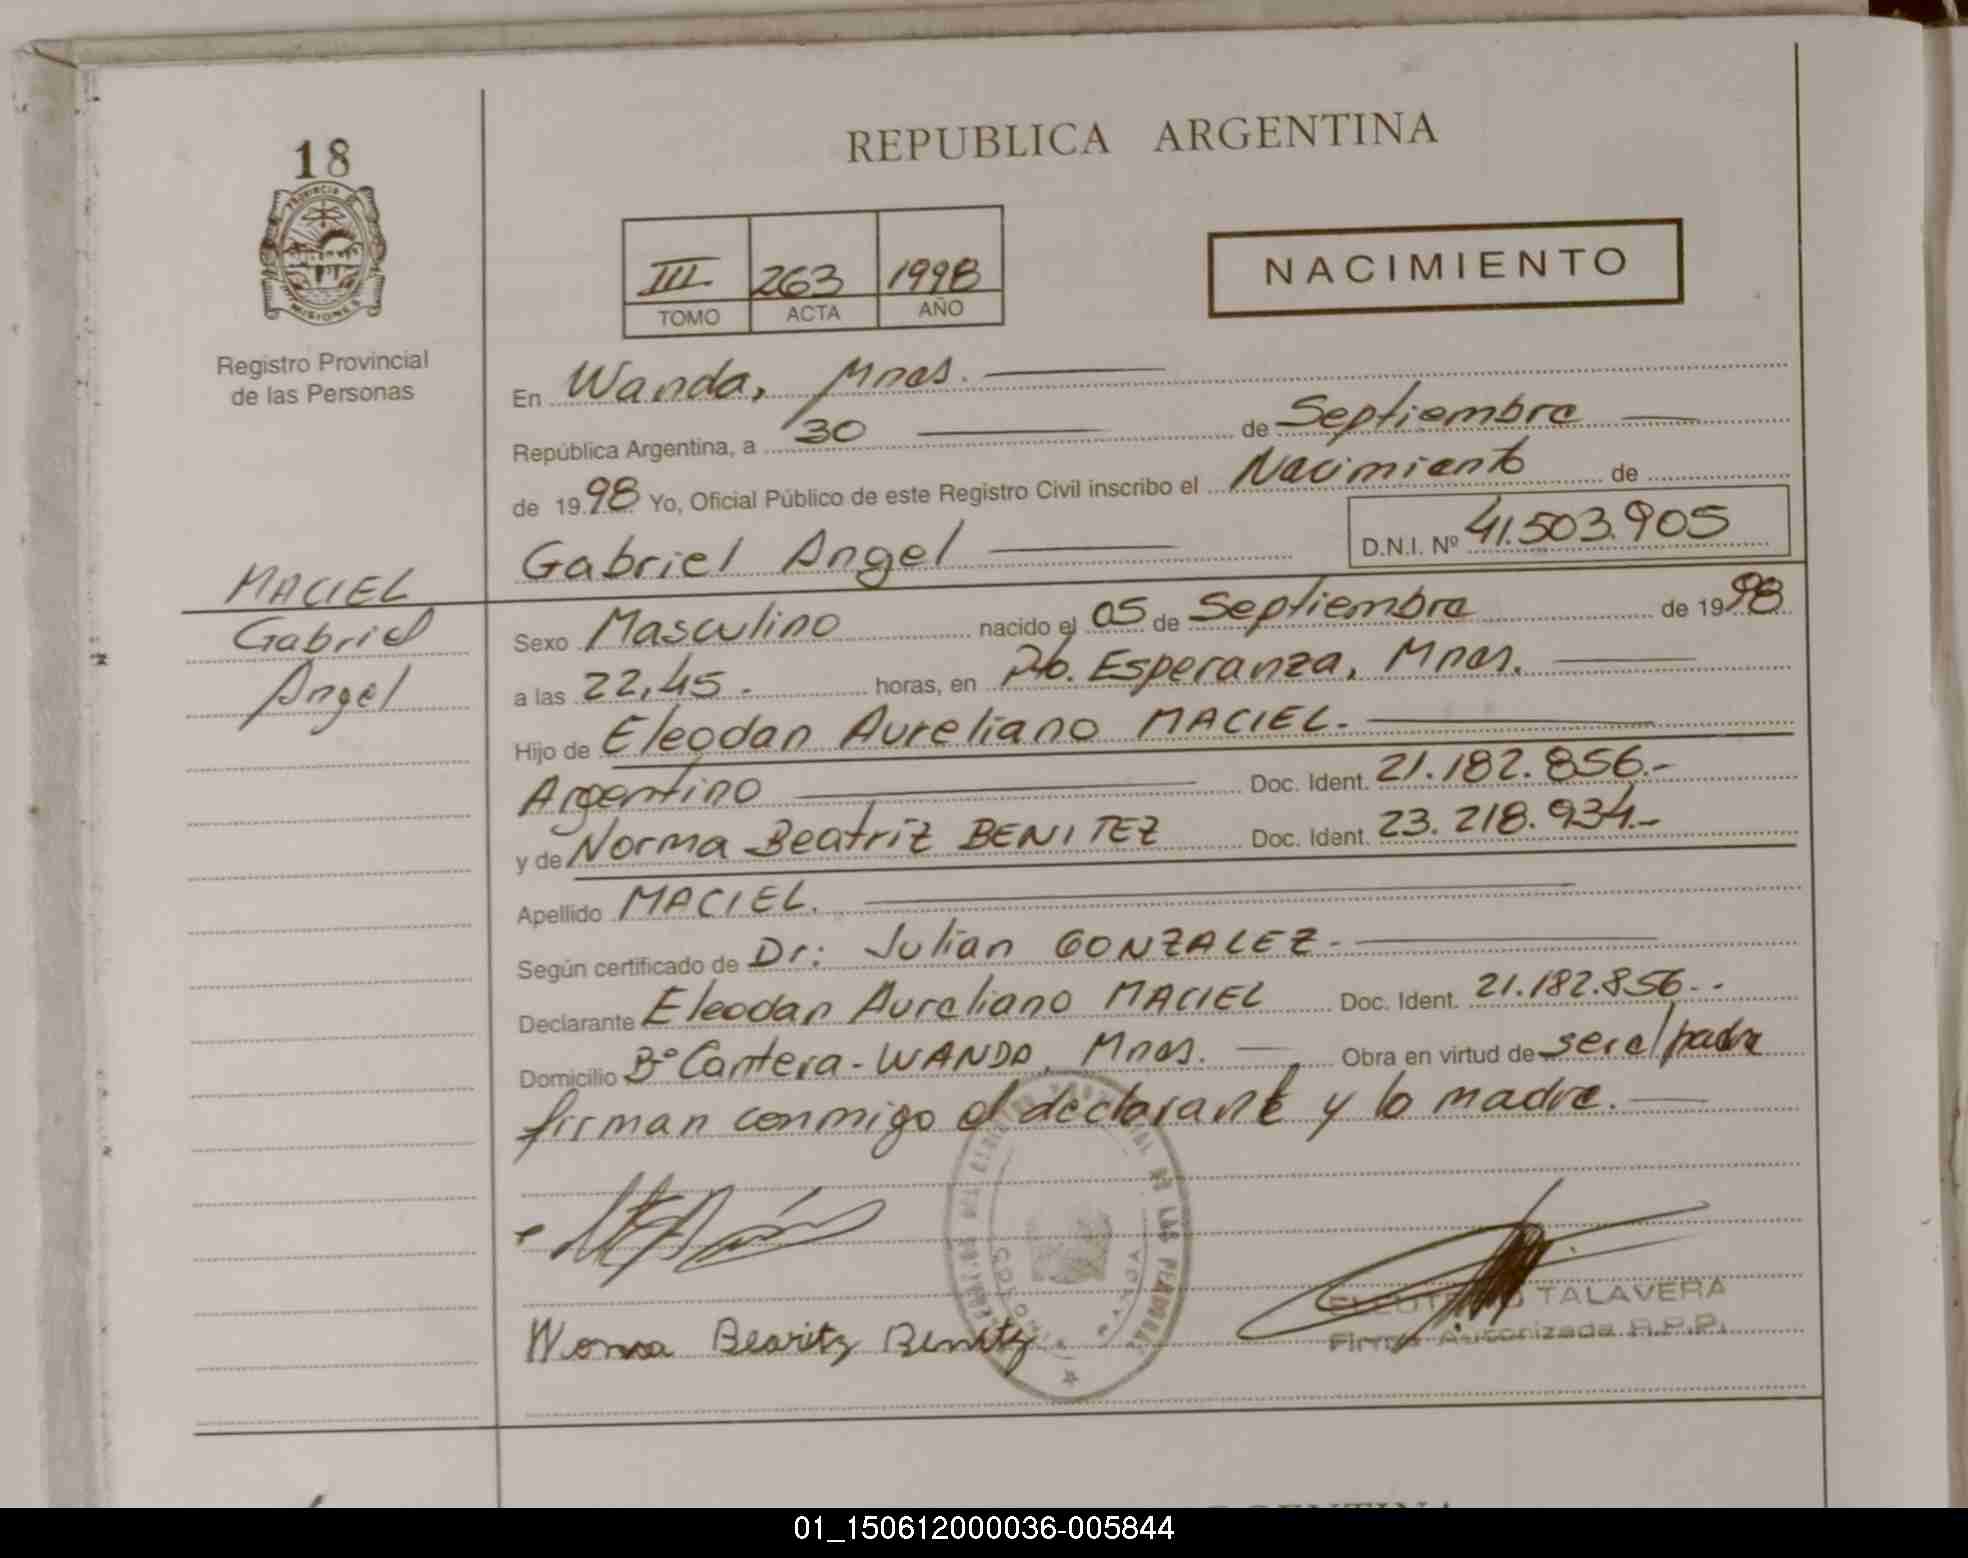 18
PROVINCIA
MISIONES
Registro Provincial
de las Personas
MACIEL
Gabriel
Angel
REPUBLICA ARGENTINA
III 263 1998
TOMO ACTA AÑO
NACIMIENTO
En Wanda, Mnes.
República Argentina, a 30 de Septiembre
de 1998 Yo, Oficial Público de este Registro Civil inscribo el Nacimiento de
Gabriel Angel D.N.I. Nº 41.503.905
Sexo Masculino nacido el 05 de Septiembre de 1998
a las 22,45. horas, en Pto. Esperanza, Mnes.
Hijo de Eleodan Aureliano MACIEL.
Argentino Doc. Ident. 21.182.856.-
y de Norma Beatriz BENITEZ Doc. Ident. 23.218.934.-
Apellido MACIEL.
Según certificado de Dr: Julian GONZALEZ.
Declarante Eleodan Aureliano MACIEL Doc. Ident. 21.182.856.-
Domicilio Bº Cantera - WANDA, Mnes. Obra en virtud de ser el padre
firman conmigo el declarante y la madre.
TALAVERA
Firma Autorizada R.P.P.
Benitz
01_150612000036-005844